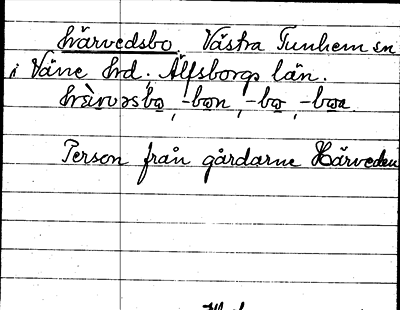 härvedsbo. Västra Tunhem sn
i Väne hrd. Älfsborgs län.
Person från gårdarne Härveden